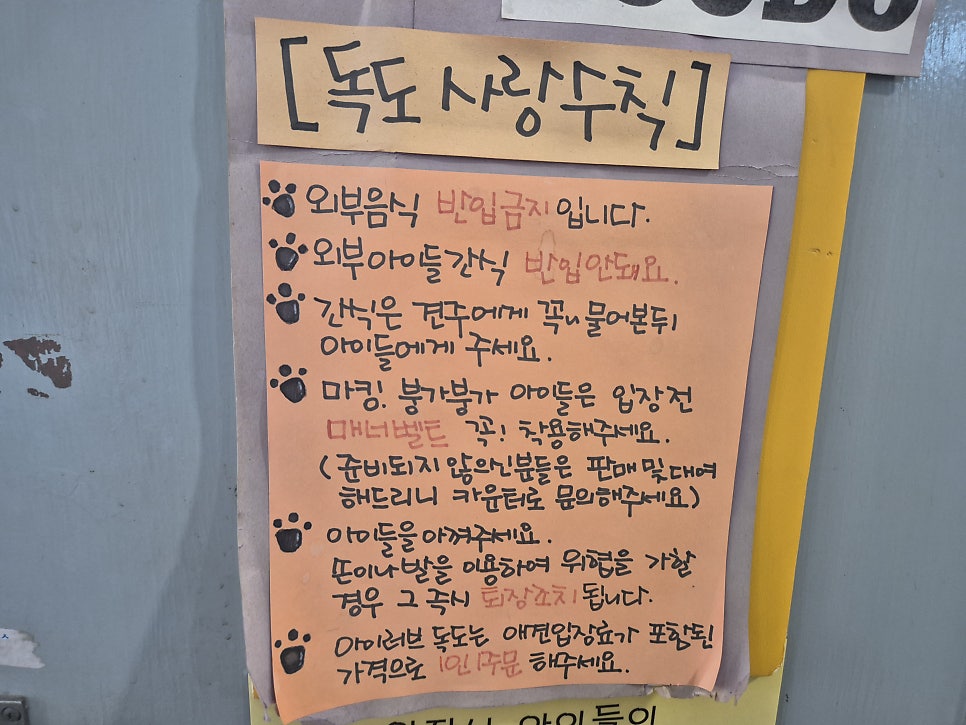 [독도 사랑수칙]
외부음식 반입금지입니다.
외부아이들간식 반입안돼요.
간식은 견주에게 꼭 물어본뒤
아이들에게 주세요.
마킹. 붕가붕가 아이들은 입장전
매너벨트 꼭! 착용해주세요.
(준비되지 않으신분들은 판매및대여
해드리니 카운터로 문의해주세요)
아이들을아껴주세요.
손이나발을 이용하여 위협을 가할
경우 그즉시 퇴장조치 됩니다.
아이러브 독도는 애견입장료가 포함된
가격으로 1인1주문 해주세요.